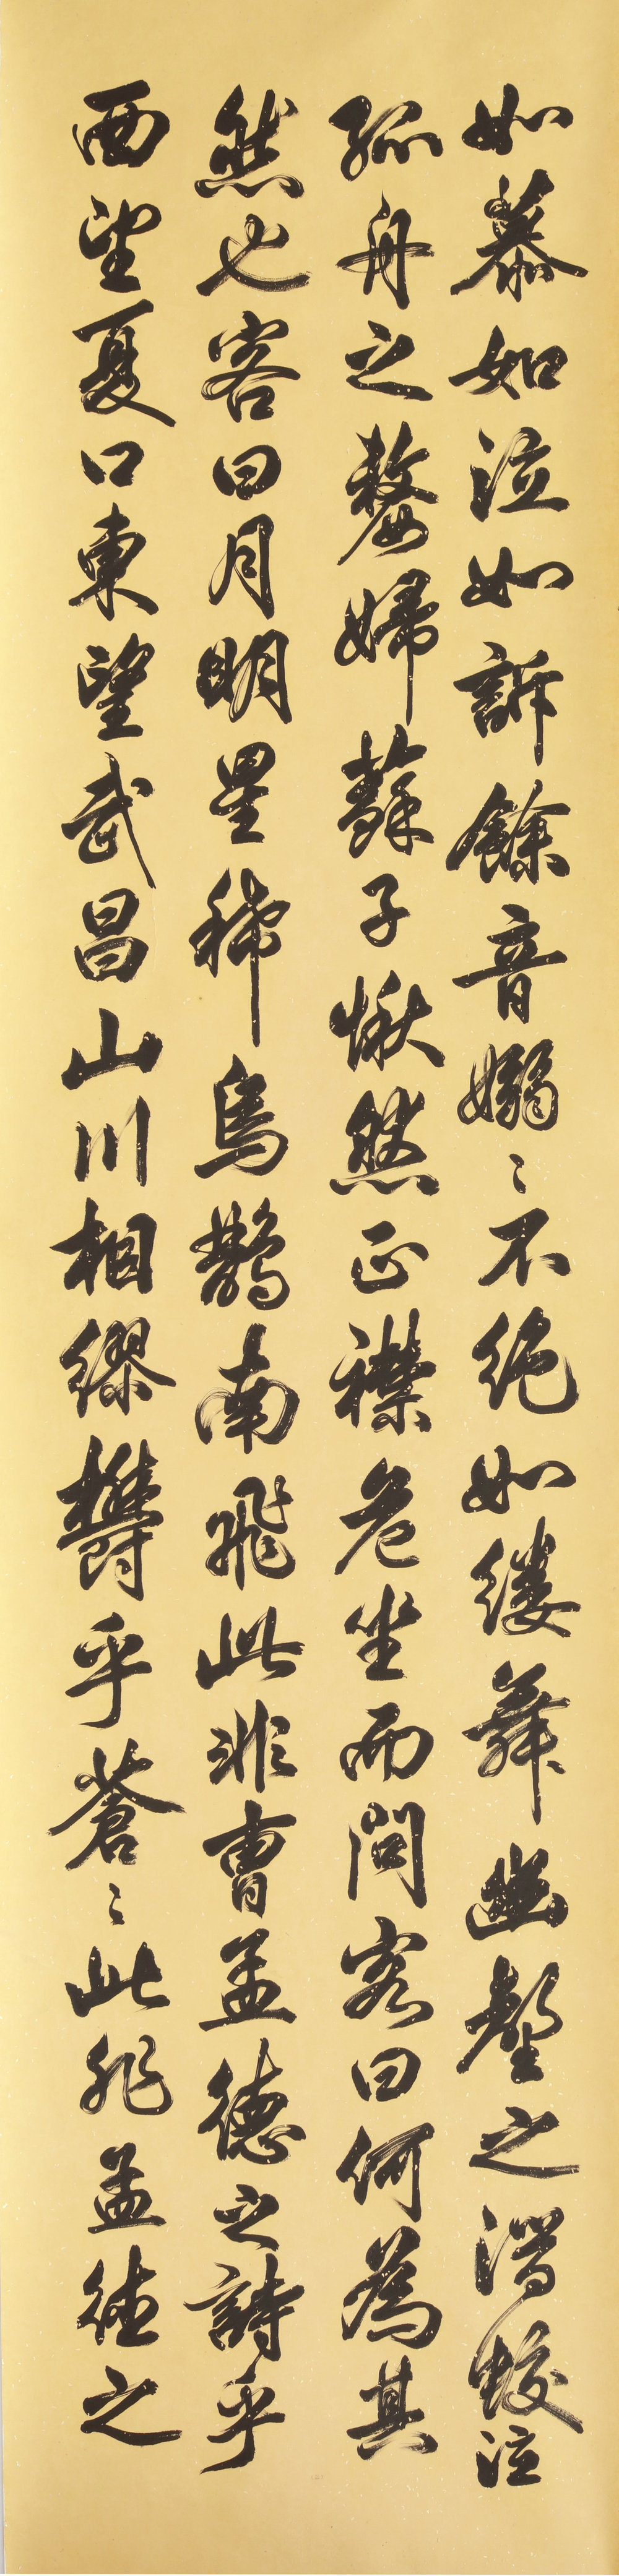 如慕如泣如訴餘音嫋〻不絕如縷舞幽壑之潛蛟泣
孤舟之嫠婦蘇子愀然正襟危坐而問客曰何為其
然也客曰月明星稀烏鵲南飛此非曹孟德之詩乎
西望夏口東望武昌山川相繆鬱乎蒼〻此非孟德之